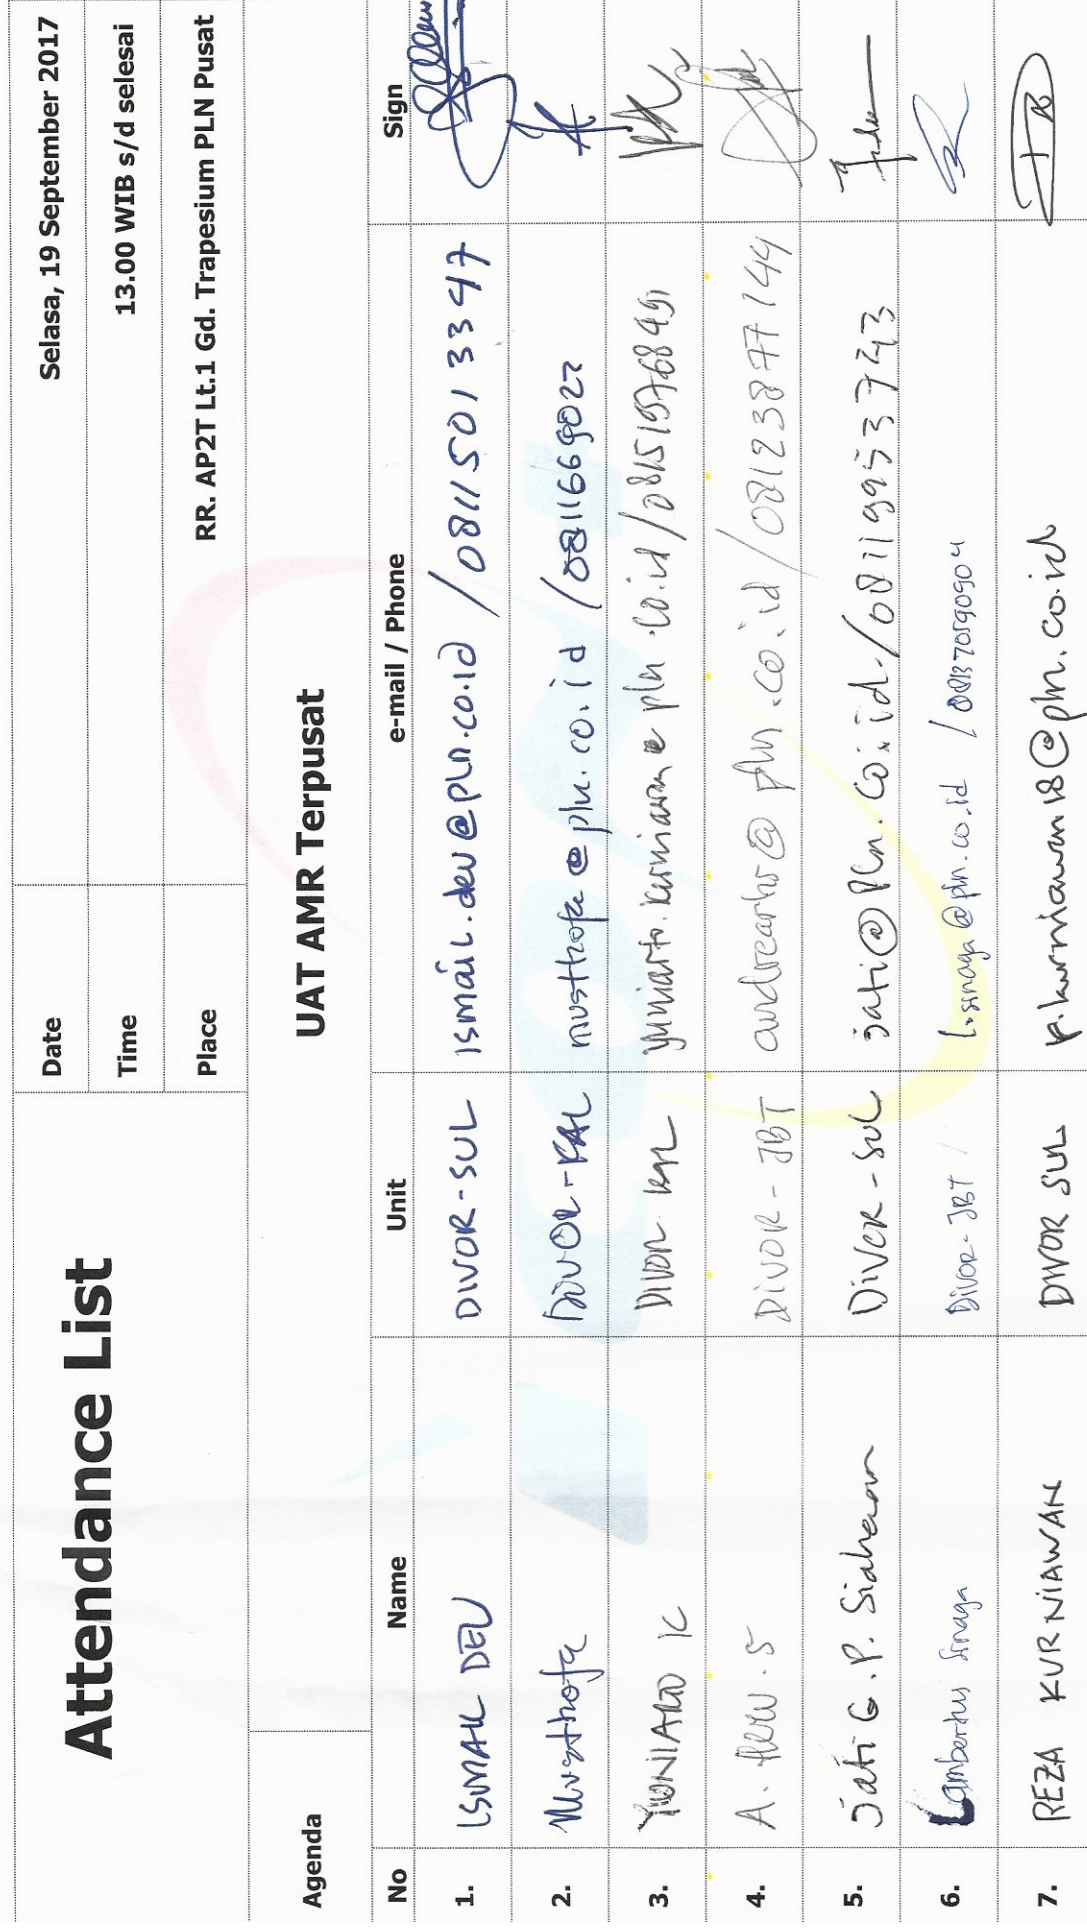 Attendance List
Date Selasa, 19 September 2017
Time 13.00 WIB s/d selesai
Place RR. AP2T Lt.1 Gd. Trapesium PLN Pusat
Agenda UAT AMR Terpusat
No Name Unit e-mail / Phone Sign
1. ISMAIL DEU DIVOR-SUL ismail.deu@pln.co.id / 08115013347
2. Musthofa DIVOR-KAL musthofa@pln.co.id / 0811669022
3. YUNIARTO K DIVOR KAL yuniarto.kurniawan@pln.co.id / 081519768491
4. A. Heru.S DIVOR-JBT andreashs@pln.co.id / 081238777144
5. Jati G.P. Siahaan DIVOR-SUL jati@pln.co.id / 08119953743
6. Lambertus Sinaga DIVOR-JBT l.sinaga@pln.co.id / 081370590904
7. REZA KURNIAWAN DIVOR SUL r.kurniawan18@pln.co.id